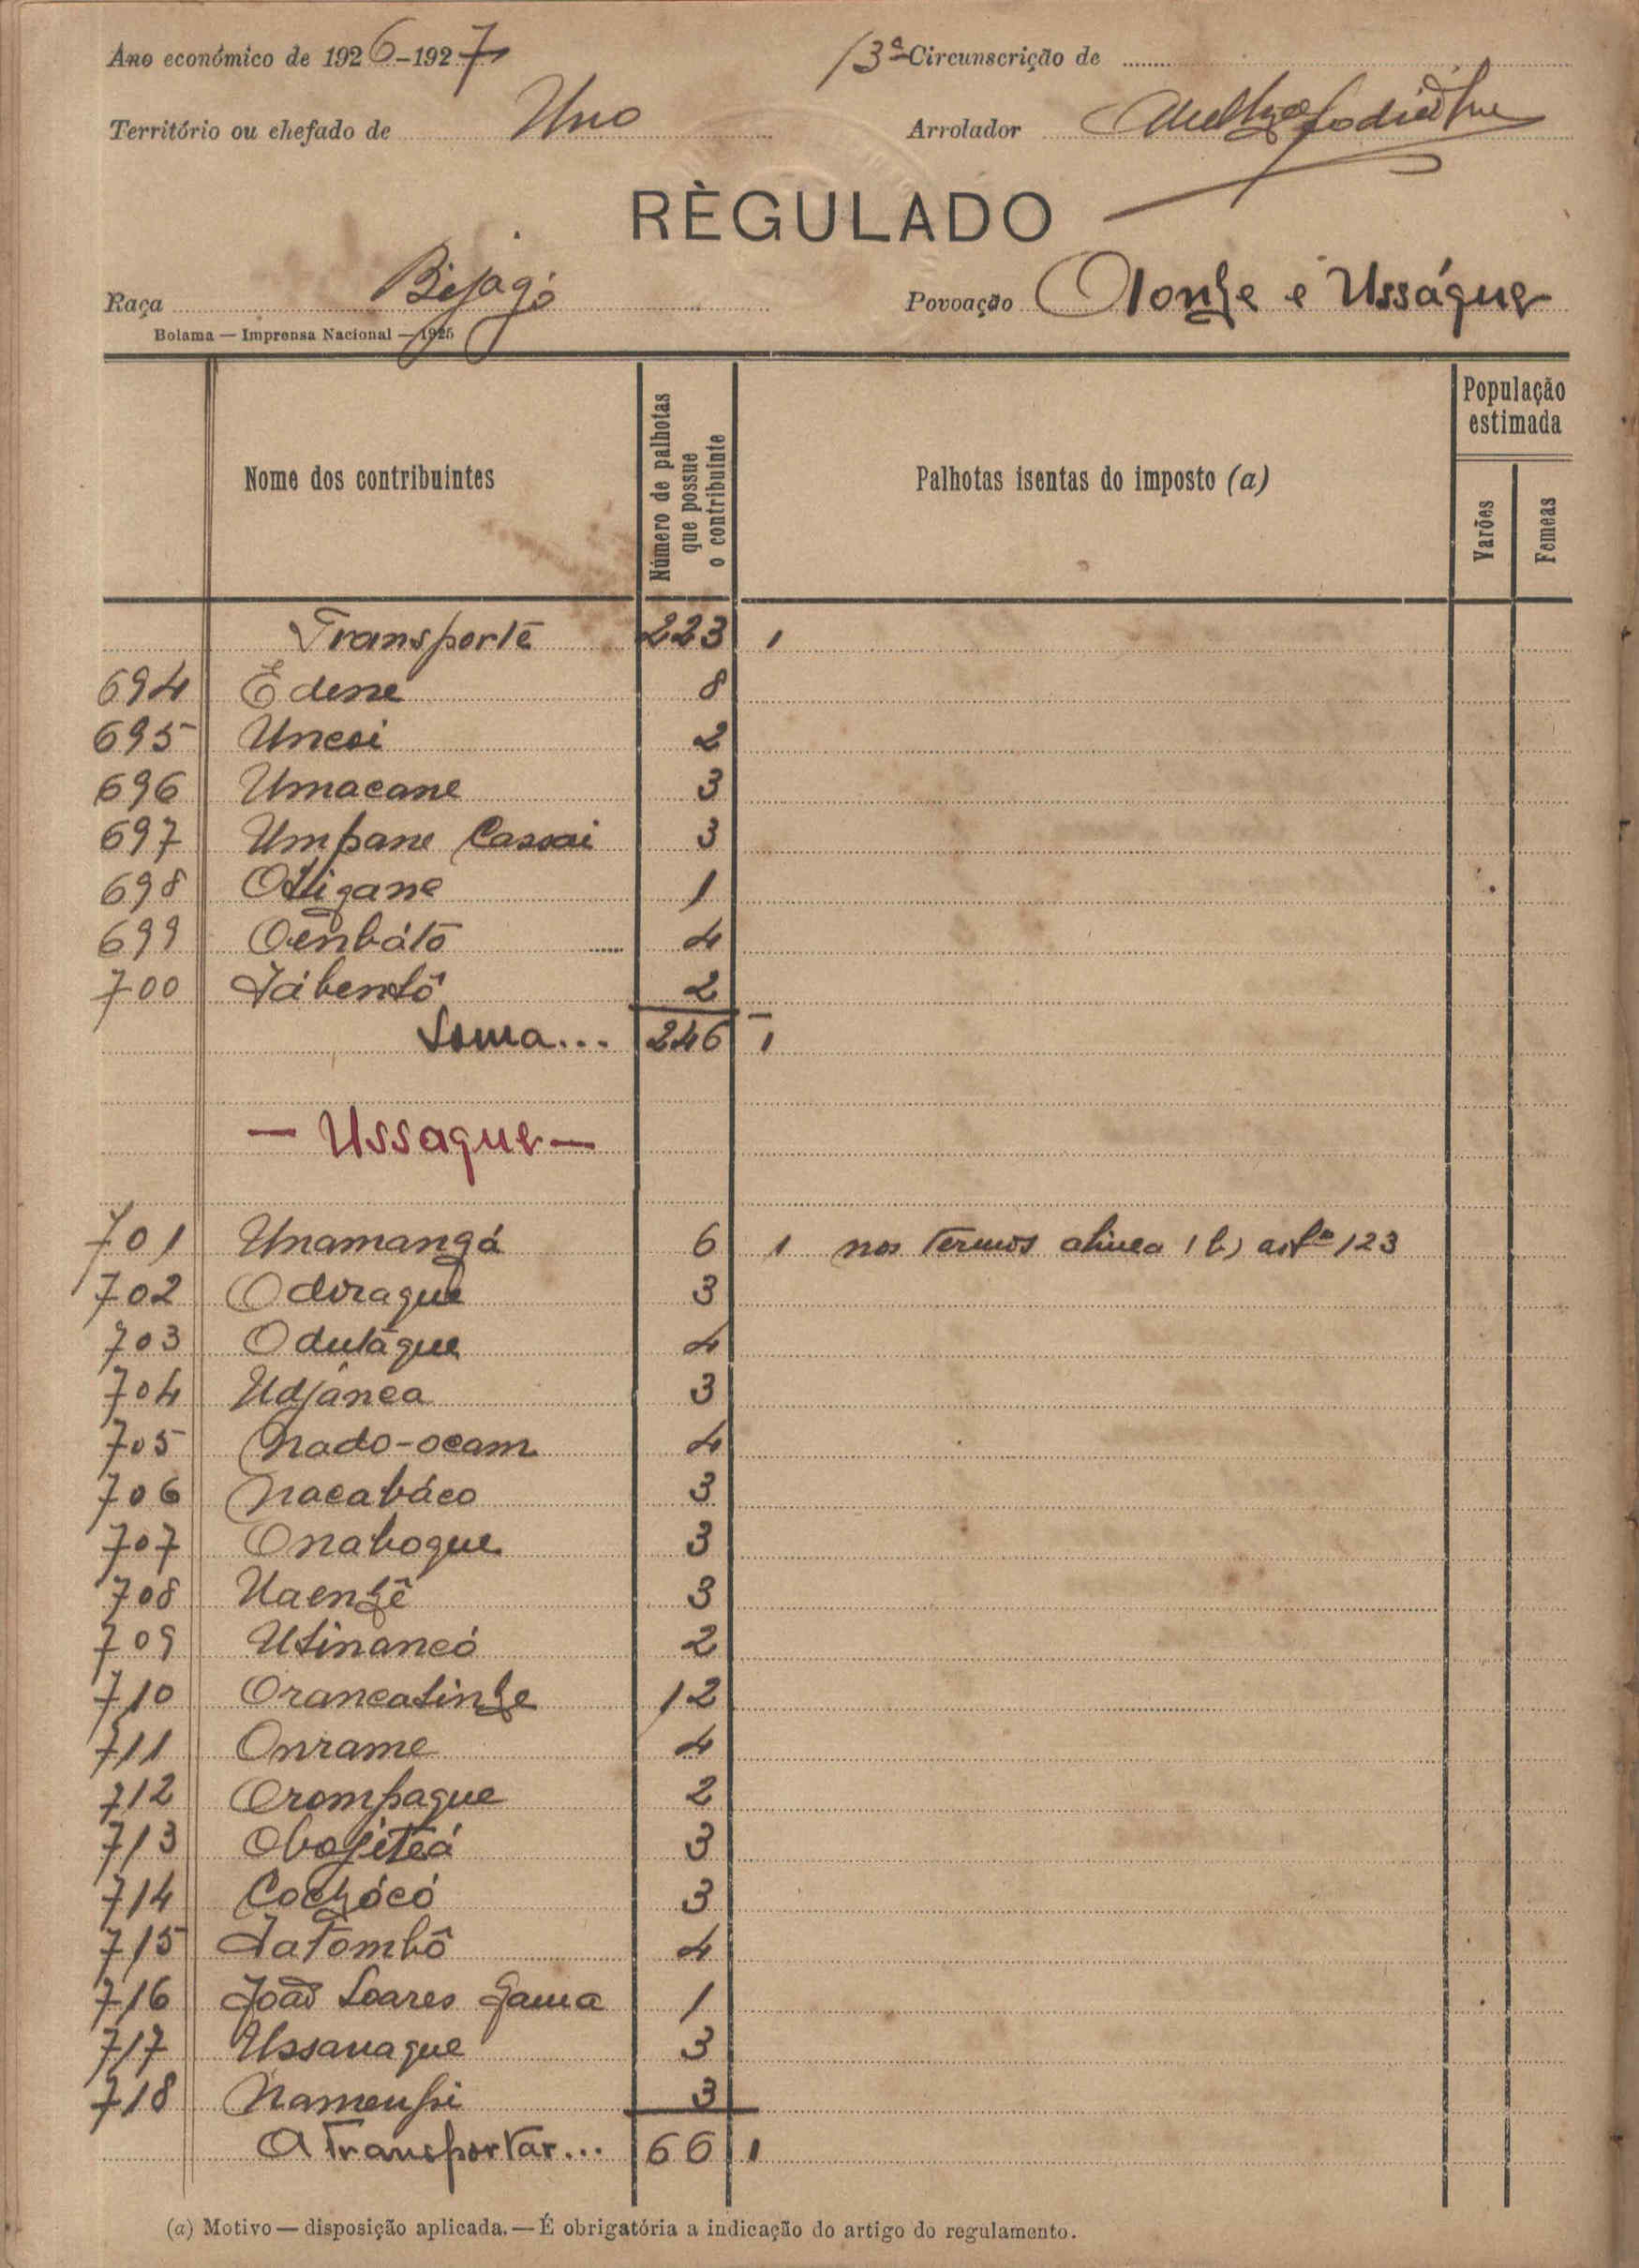 Ano económico de 1926-1927
13ª Circunscrição de
Território ou chefado de Uno
Arrolador
RÈGULADO
Raça Bijagó
Povoação Olonge e Usságue
Bolama — Imprensa Nacional — 1925
Nome dos contribuintes
Número de palhotas que possue o contribuinte
Palhotas isentas do imposto (a)
População estimada
Varões
Femeas
Transporte 223 1
694 Edene 8
695 Uncoi 2
696 Umacane 3
697 Umpane Cassai 3
698 Otigane 1
699 Oenbátô 4
700 Jábentô 2
Soma... 246 1
— Ussague —
701 Unamangá 6 1 nos termos alinea (b) artº 123
702 Odiraque 3
703 Odutáque 4
704 Udjánca 3
705 Nado-ocam 4
706 Nacabáco 3
707 Onaboque 3
708 Uaengê 3
709 Utinancó 2
710 Orancatinge 12
711 Onrame 4
712 Orompaque 2
713 Obojiteá 3
714 Cochócó 3
715 Jatombô 4
716 João Soares Gama 1
717 Ussanaque 3
718 Nameupi 3
A Transportar... 66 1
(a) Motivo — disposição aplicada. — É obrigatória a indicação do artigo do regulamento.